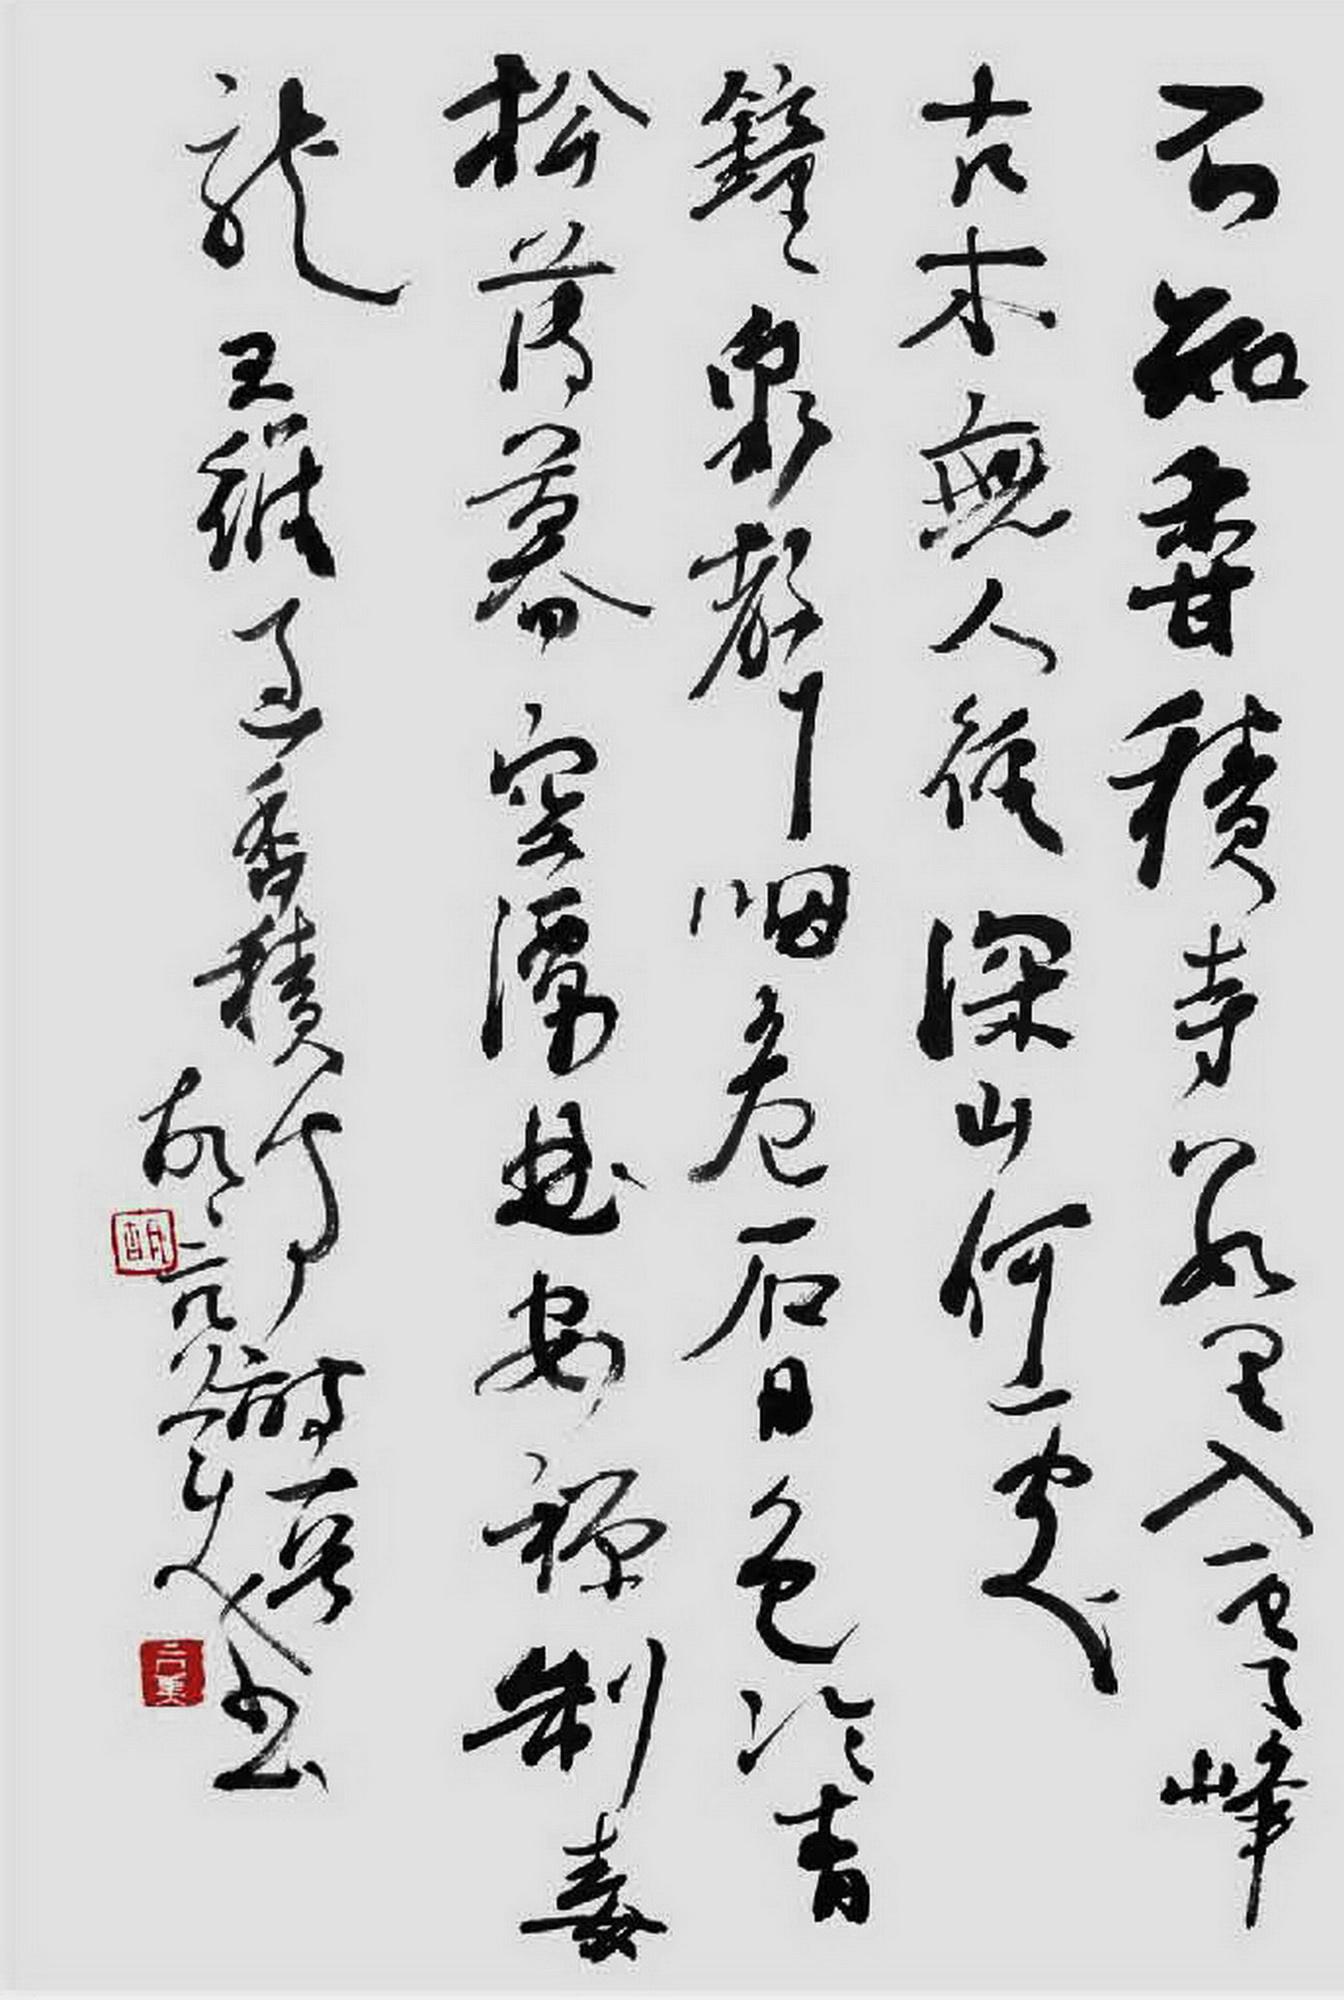 不知香積寺数里入雲峰
古木無人徑深山何處
鐘泉聲咽危石日色冷青
松薄暮空潭曲安禪制毒
龍
王維過香積寺
胡
书
胡